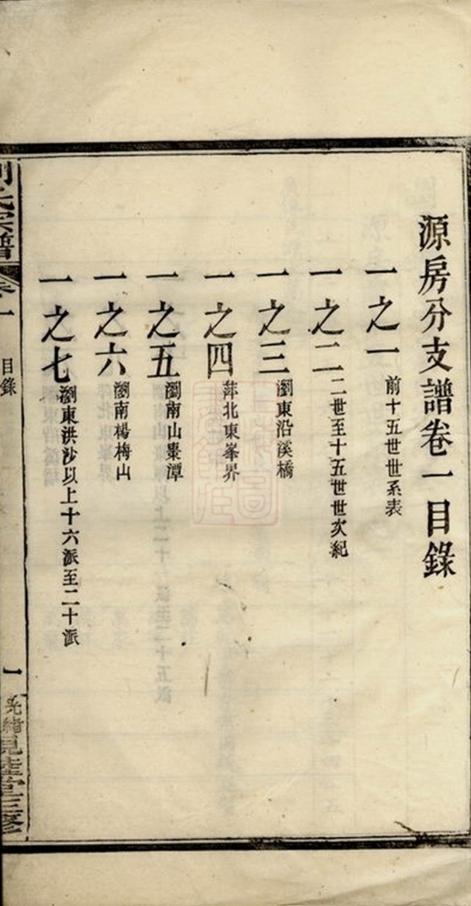 源房分支譜卷一目錄
一之一 前十五世世系表
一之二 二世至十五世世次紀
一之三 瀏東沿溪橋
一之四 萍北東峯界
一之五 瀏南山棗潭
一之六 瀏南楊梅山
一之七 瀏東洪沙以上十六派至二十派
宗譜 卷一 目錄 一 光緒